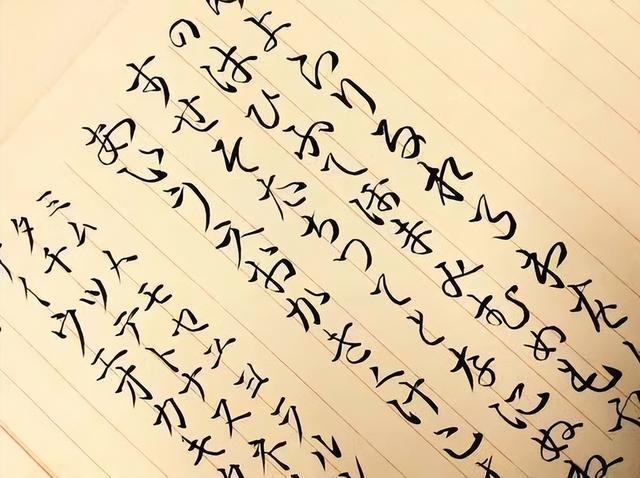 よらりるれろわをん
のはひふへほまみむめもや
すせそたちつてとなにぬね
あいうえおかきくけこさ
ミムメモヤユヨラリル
タチツテトナニヌネ
イウエオカキク